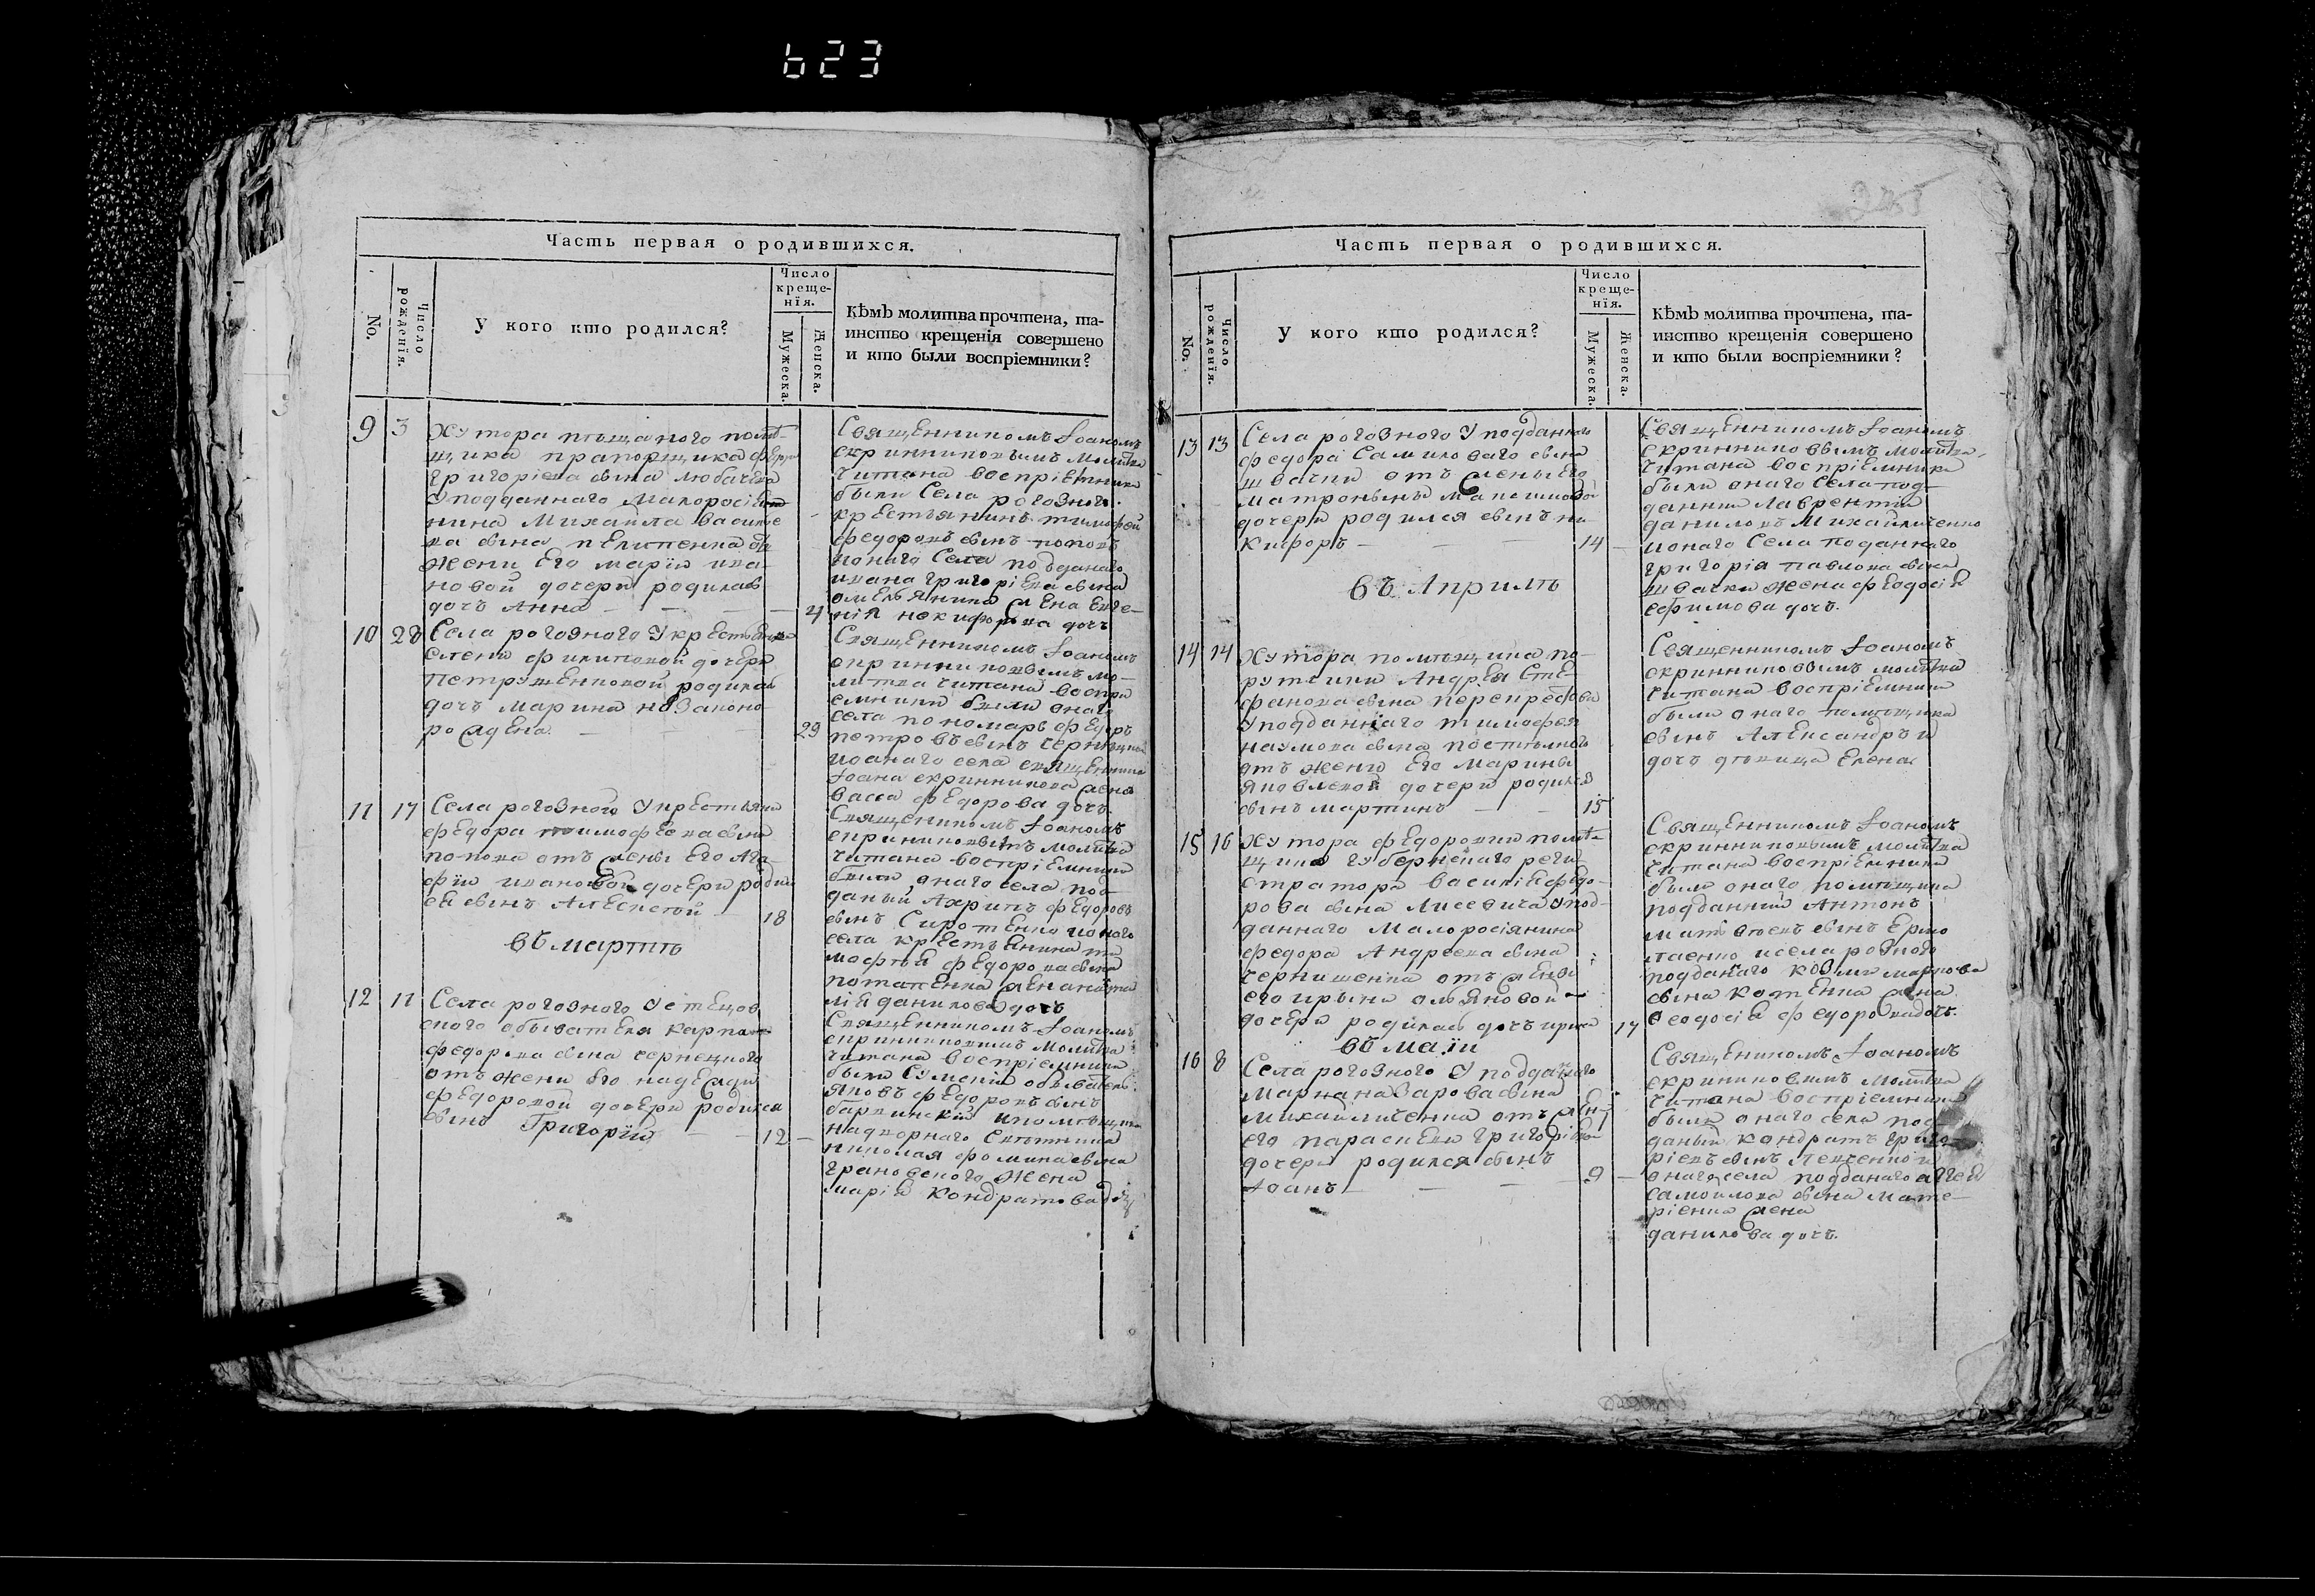 623
Часть первая о родившихся.
No.
Число рожденїя.
У кого кто родился?
Число
креще-
нїя.
Мужеска.
Женска.
Кѣмъ молитва прочтена, та-
инство крещенія совершено
и кто были воспріемники?
9 3
Хутора пещаного помѣ-
щика прапорщика
григоріева сына
у подданнаго малоросіян
нина Михайла василе
ва сына
жени его маріи ива-
новой дочери родилась
дочъ Анна
4
Священникомъ Іоаномъ
скринниковымъ молитва
читана воспріемники
были Села рогозного
крестьянинъ тимофей
федоровъ сынъ поповъ
ионаго Села подданаго
ивана григоріева сына
жена евге-
нія никифорова дочь
10 28
Села рогозного у крестьянки
филиповой дочери
Петрущенковой родилась
дочъ марина незаконо-
рождена
29
Священникомъ Іоаномъ
скринниковымъ мо-
литва читана воспри
емники были онаго
села пономаръ федоръ
петровъ сынъ
ионаго села священника
Іоана скринникова жена
васса федорова дочъ
11 17
Села рогозного у крестьяна
федора тимофеева сына
попова отъ жены его Ага-
фіи ивановой дочери родил
ся сынъ Алексей
18
Священикомъ Іоаномъ
скриниковымъ молитва
читана воспріемники
были онаго села под
даный федоровъ
сынъ Сиротенко ионого
села крестьянина ти
мофея федорова сына
потапенка жена ната
лія данилова дочъ
въ мартѣ
12 11
Села рогозного
ского обывателя карпа
федорова сына чернецкого
отъ жени его надежди
федоровой дочери родился
сынъ Григорій
12
Священникомъ Іоаномъ
скринниковымъ молитва
читана воспріемники
были Сумскій обыватель
яковъ федоровъ сынъ
и помѣщика
надворнаго Совѣтника
николая фомича сына
грановского жена
марія кондратова дочъ
Часть первая о родившихся.
No.
Число рожденїя.
У кого кто родился?
Число
креще-
нїя.
Мужеска.
Женска.
Кѣмъ молитва прочтена, та-
инство крещенія совершено
и кто были воспріемники?
13 13
Села рогозного у подданаго
федора Самилового сына
швачки отъ жены его
матроныны
дочери родился сынъ ни
кифоръ
14
Священникомъ Іоаномъ
скринниковымъ молитва
читана воспріемники
были онаго села под-
данни лаврентій
даниловъ Михайличенко
ионаго Села поданнаго
григорія павлова сына
швачки жена феодосія
ефимова дочъ.
въ Априлѣ
14 14
Хутора помѣщика по-
ручика Андрея Сте-
фанова сына перекрестова
у подданнаго тимофея
наумова сына постѣлного
отъ жени его Марины
яковлевой дочери родился
сынъ мартинъ
15
Священникомъ Іоаномъ
скринниковымъ молитва
читана воспріемники
были онаго помѣщика
сынъ Александръ и
дочъ дѣвица Елена
15 16
Хутора федоровки помѣ
щика губернскаго реги-
стратора василія федо-
рова сына Лисевича у под-
даннаго Малоросіянина
федора Андреева сына
чернишенка отъ жены
его ирыни
дочери родилась дочъ ирина
17
Священникомъ Іоаномъ
скринниковымъ молитва
читана воспріемники
были онаго помѣщика
подданній Антонъ
матвѣевъ сынъ Ермо
лаенко и села рогозного
подданаго козми маркова
сына котенка жена
феодосія федорова дочъ
въ маїи
16 8
Села рогозного у подданаго
марка назарова сына
михайличенка отъ жены
его параскевы григоріевой
дочери родился сынъ
Іоанъ
9
Священикомъ Іоаномъ
скриниковымъ молитва
читана воспріемники
были онаго села под
даный кондратъ григо-
ріевъ сынъ Левченко и
онаго села подданаго
самоилова сына мате-
ріенка жена
данилова дочъ.